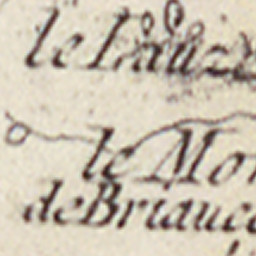 le Lauze
le Mo
de Briance